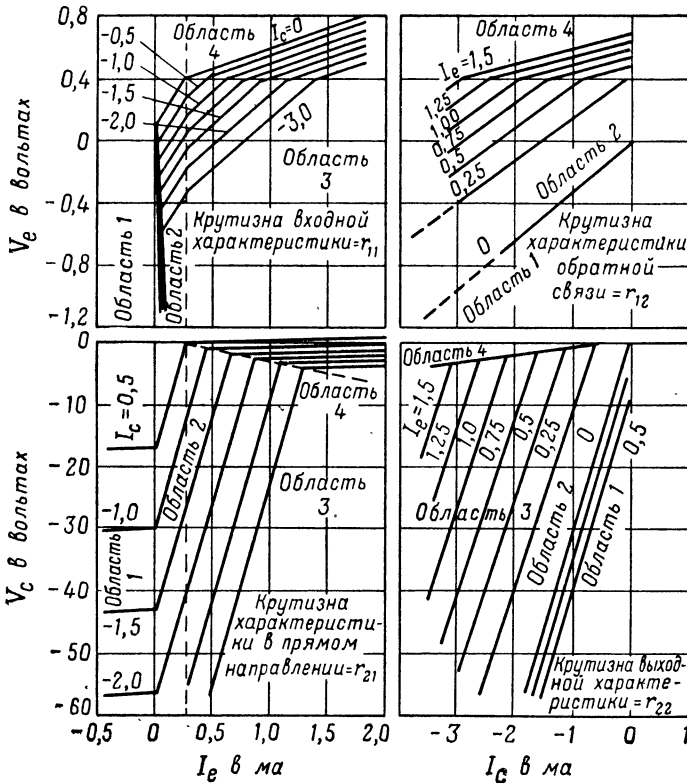 0,8
0,4
0
-0,4
-0,8
-1,2
V_e в вольтах
-0,5
-1,0
-1,5
-2,0
-3,0
Область
4
I_c=0
Область
3
Область 1
Область 2
Крутизна входной
характеристики=r₁₁
Область 4
I_e=1,5
1,25
1,00
0,75
0,5
0,25
0
Область 2
Область 1
Крутизна
характеристики
обратной
связи=r₁₂
0
-10
-20
-30
-40
-50
-60
V_c в вольтах
I_c=0,5
-1,0
-1,5
-2,0
Область
1
Область 2
Область
4
Область
3
Крутизна
характеристи-
ки в прямом
направлении=r₂₁
-0,5
0
0,5
1,0
1,5
2,0
I_e в ма
Область 4
I_e=1,5
1,25
1,0
0,75
0,5
0,25
0
0,5
Область 3
Область 2
Область 1
Крутизна выход-
ной характе-
ристики=r₂₂
-3
-2
-1
0
1
I_c в ма